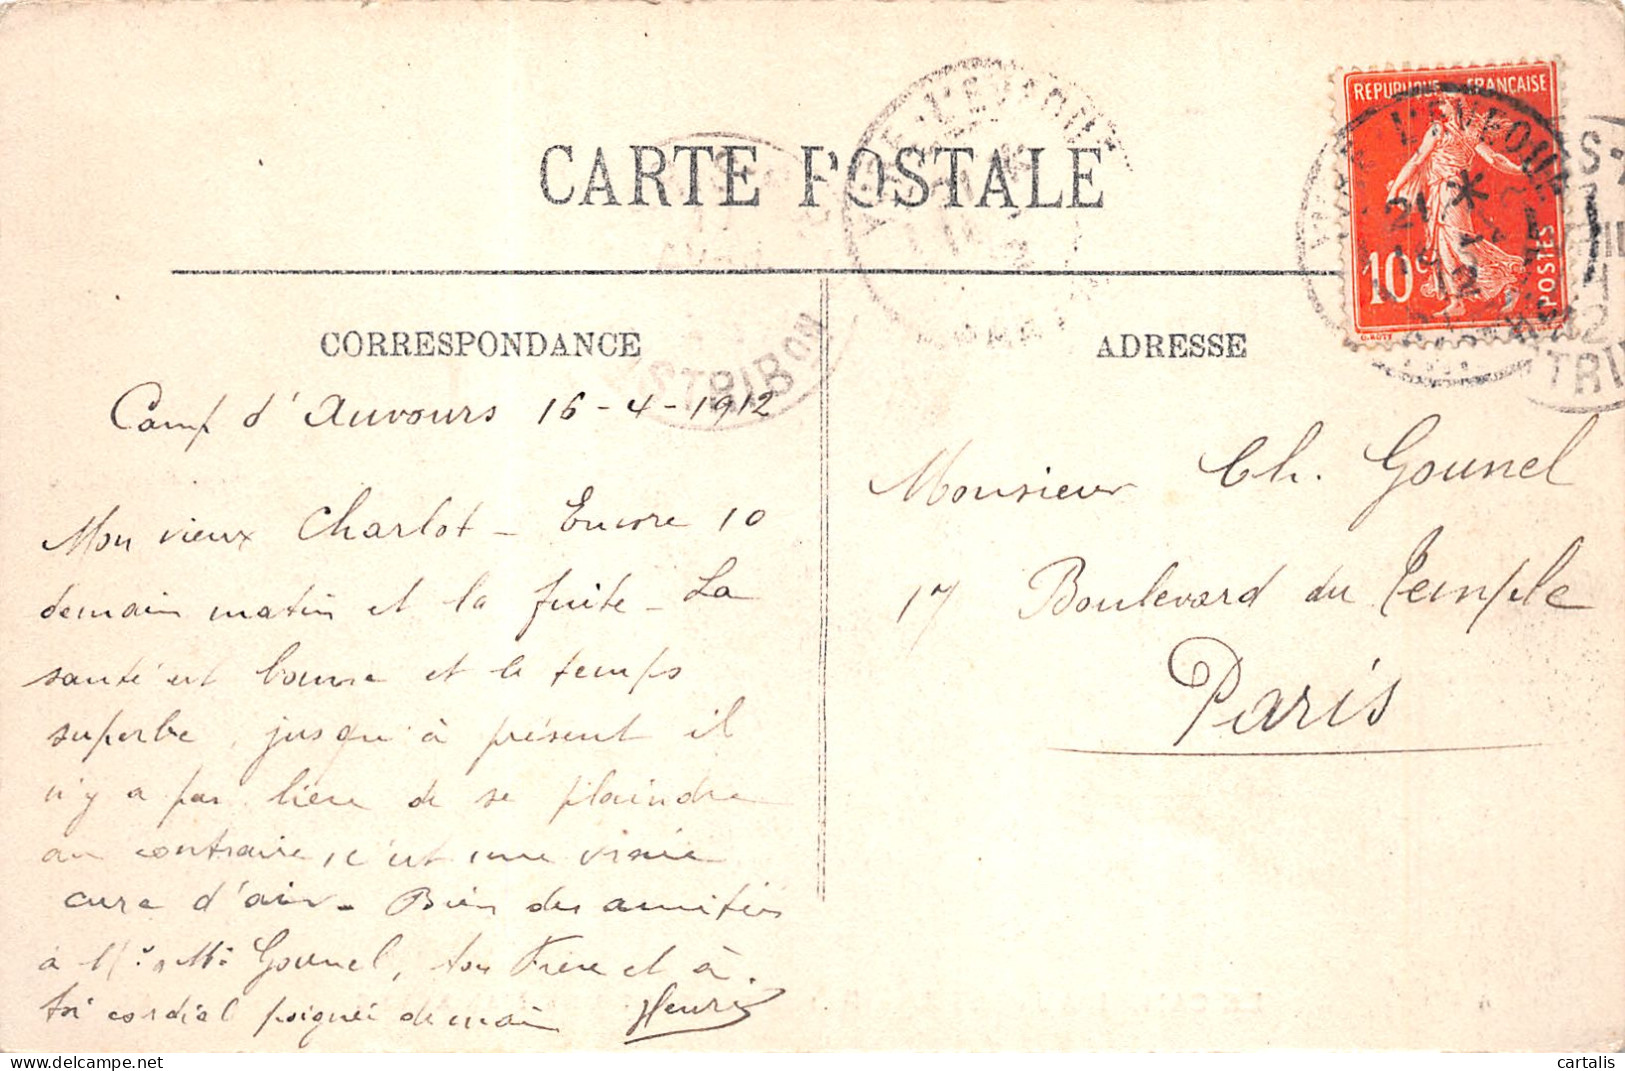 CARTE POSTALE
REPUBLIQUE FRANÇAISE
10c
POSTES
21 *
16 4
12
CORRESPONDANCE
ADRESSE
Camp d'Auvours 16-4-1912
Mon vieux Charlot - Encore 10
demain matin et la fuite - La
santé est bonne et le temps
superbe, jusqu'à présent il
n'y a pas lieu de se plaindre
au contraire, c'est une vraie
cure d'air. Bien des amitiés
à Mr. Me Gounel, ton Frère et à
toi cordial poignée de main Henri
Monsieur Ch. Gounel
17 Boulevard du Temple
Paris
cartalis